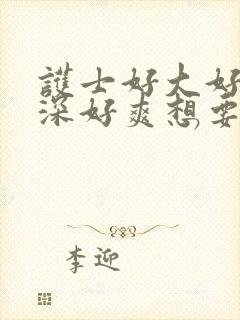 護士好大好
深好爽想要
李迎